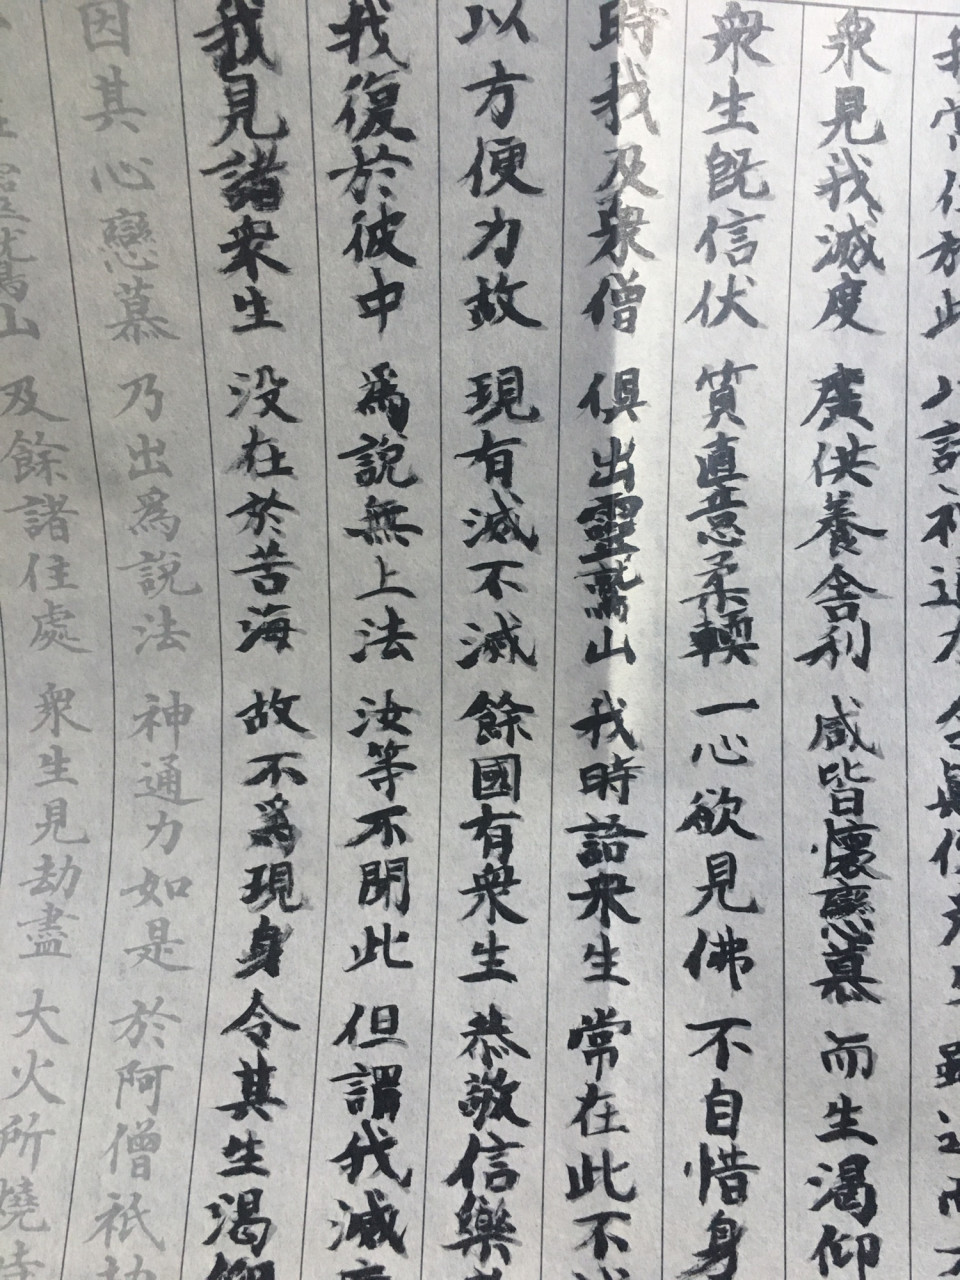 常住於此 以諸神通力 令顛倒衆生 雖近而不
衆見我滅度 廣供養舎利 咸皆懷戀慕 而生渇仰
衆生既信伏 質直意柔輭 一心欲見佛 不自惜身
時我及衆僧 倶出靈鷲山 我時語衆生 常在此不
以方便力故 現有滅不滅 餘國有衆生 恭敬信樂
我復於彼中 爲説無上法 汝等不聞此 但謂我滅度
我見諸衆生 没在於苦海 故不爲現身 令其生渇仰
因其心戀慕 乃出爲説法 神通力如是 於阿僧祇劫
在靈鷲山 及餘諸住處 衆生見劫盡 大火所燒時